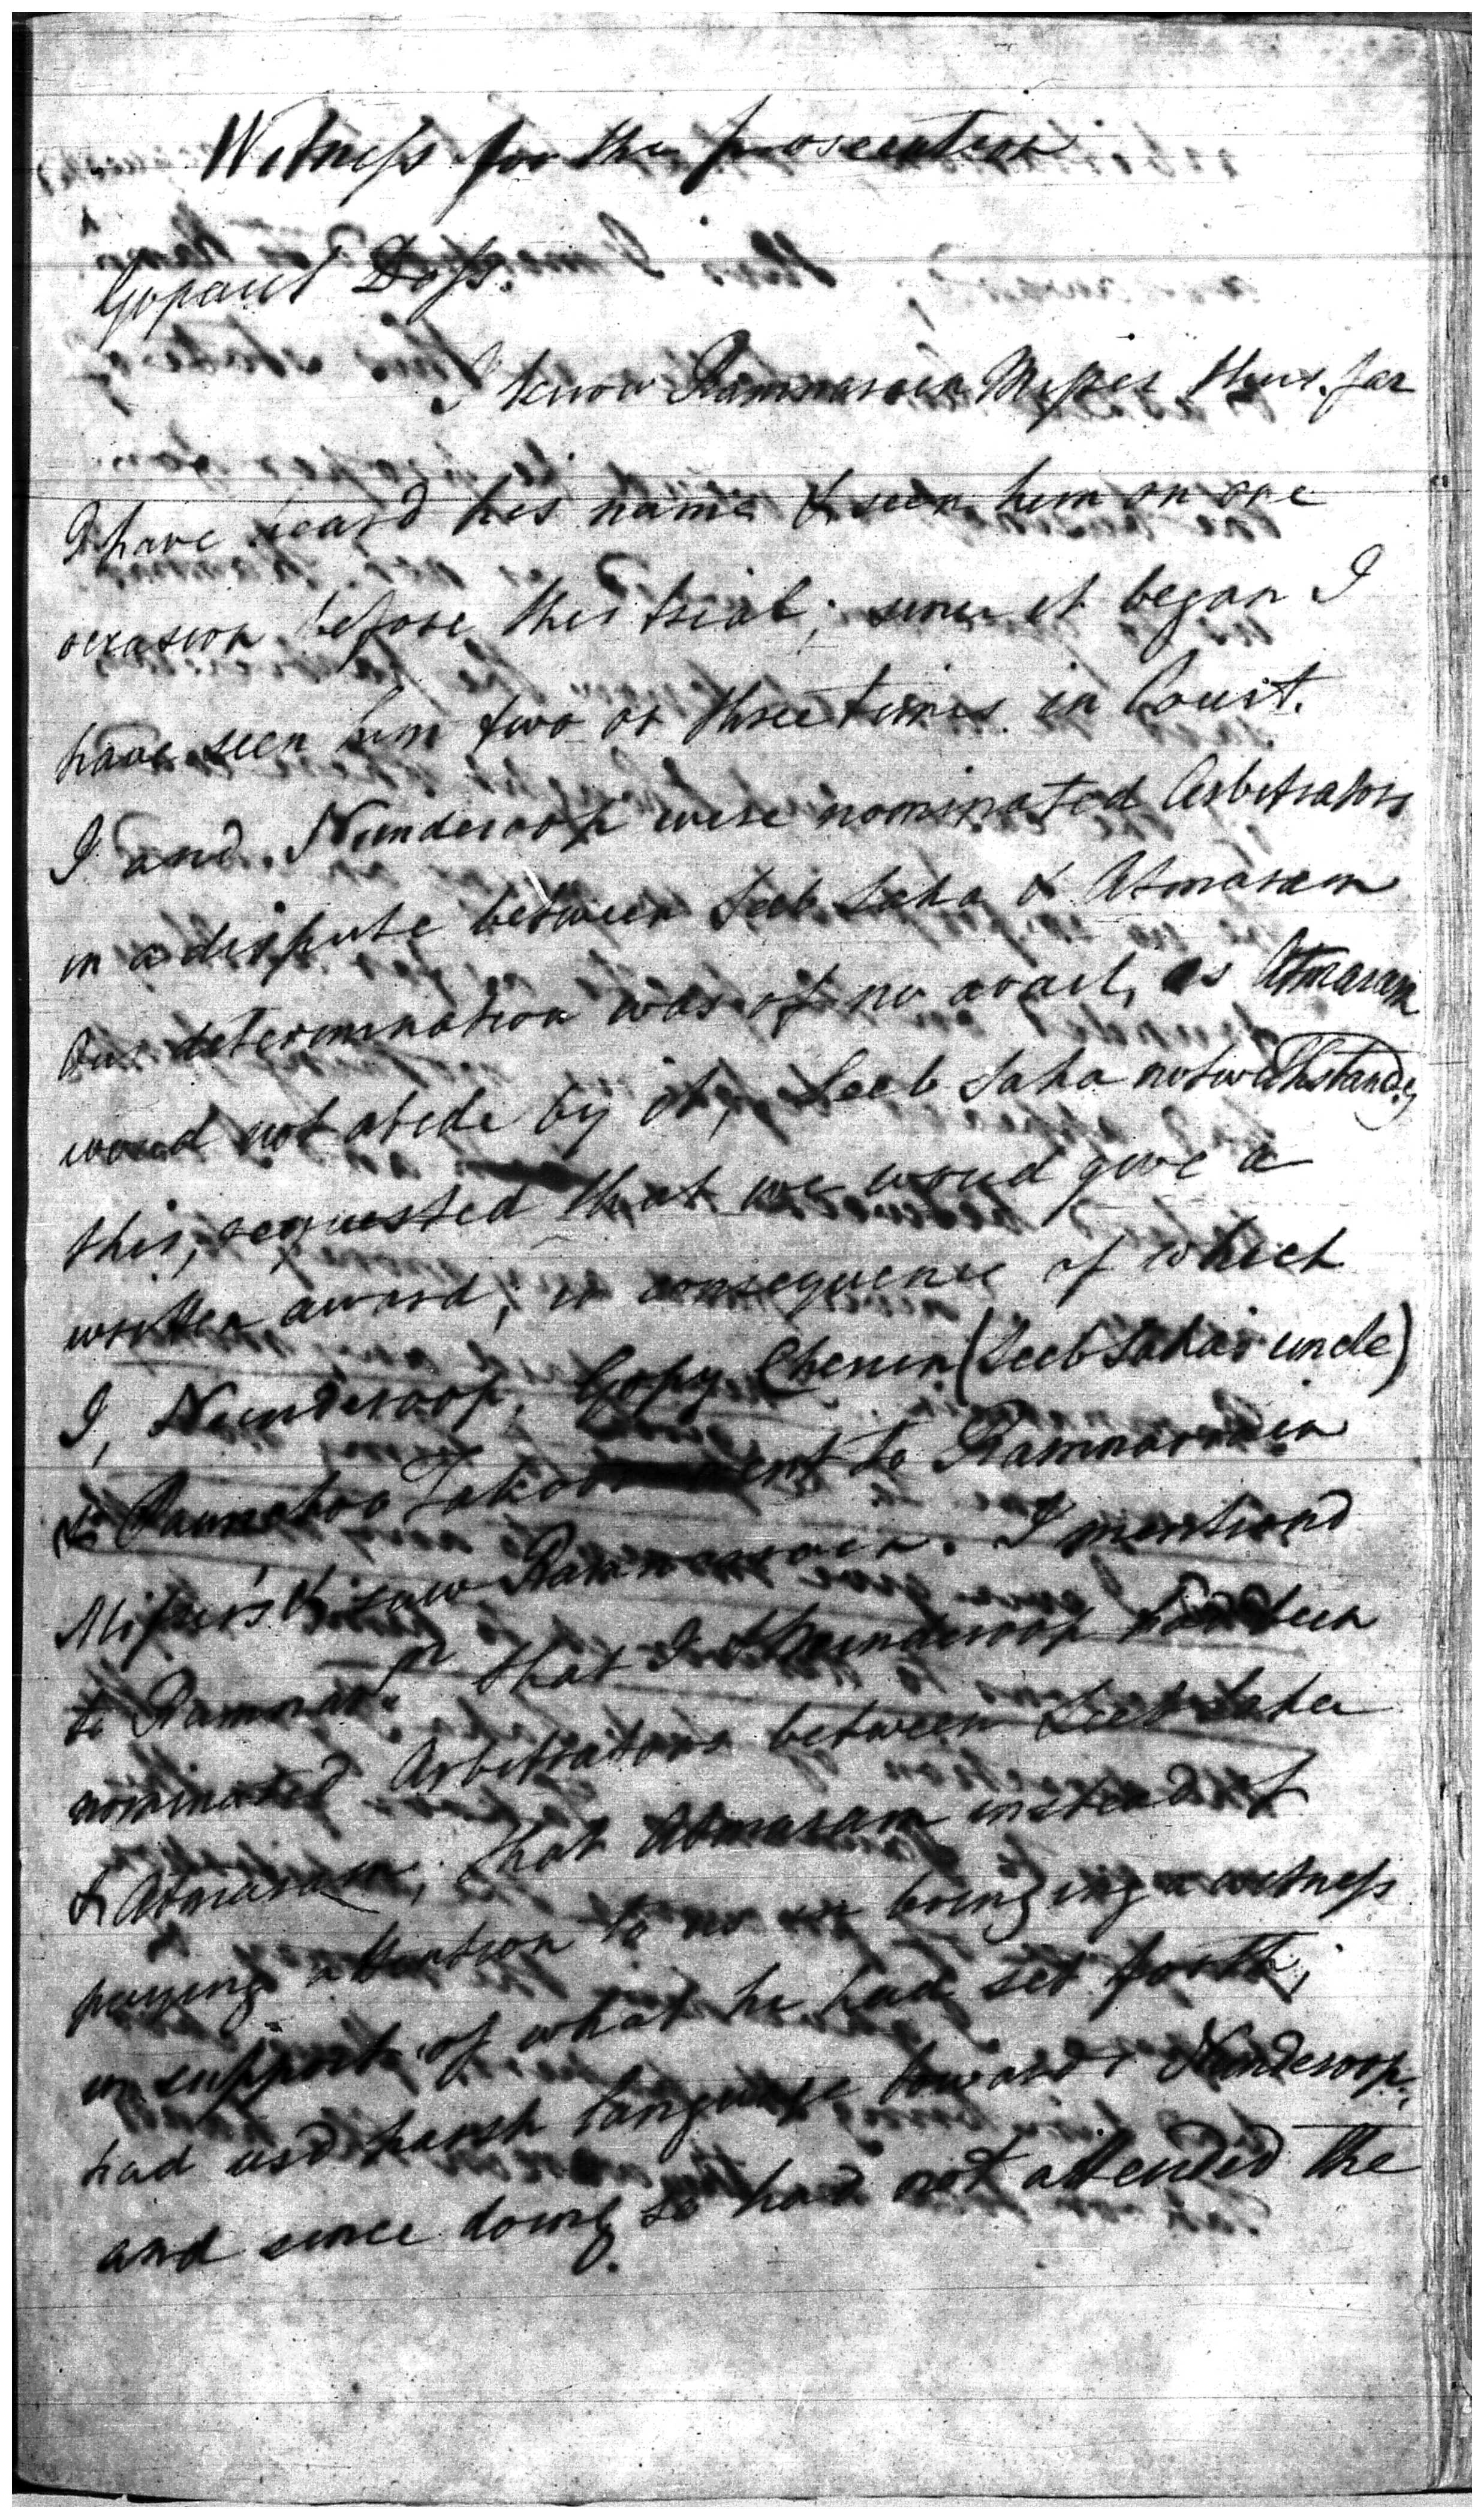 Witness for the prosecution
Gopaul Doss.
I know Ramnarain Misser thus far
I have heard his name & seen him on one
occasion before this trial; since it began I
have seen him two or three times in Court.
I and Nunderoop were nominated Arbitrators
in a dispute between Seeb Saha & Atmaram
Our determination was of no avail, as Atmaram
woud not abide by it, Seeb Saha notwithstandg
this, requested that we woud give a
written award; in consequence of which
I, Nunderoop, Gopy Chenin (Seeb Saha's uncle)
& Takoor went to Ramnarrain
Misser's & saw Ramnarrain. I mentiond
to Ramnarn that I & Nunderoop had been
nominated Arbitrators between Seeb Saha
& Atmaram, that Atmaram instead of
paying attention to us or bringing a witness
in support of what he had set forth,
had usd harsh language towards Nunderoop,
and since doing so had not attended the